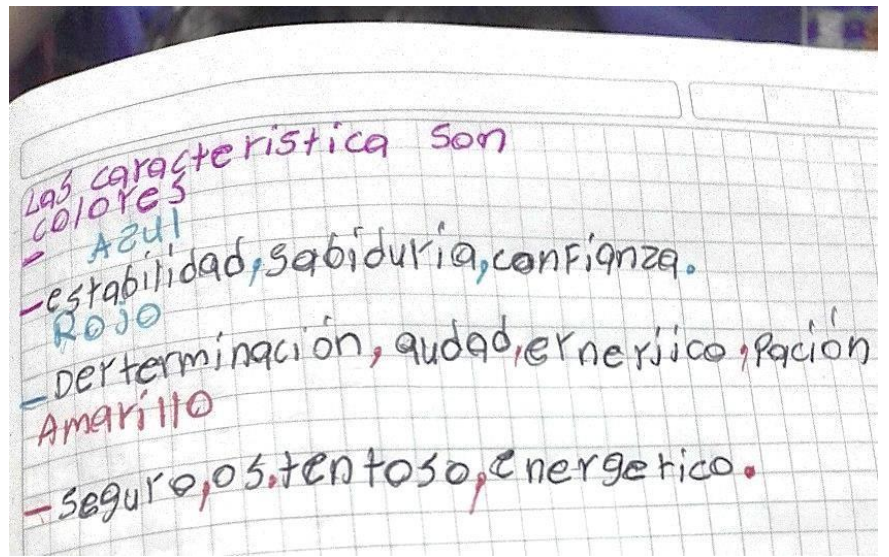 Las caracteristica son
colores
- Azul
-estabilidad, sabiduria, confianza.
Rojo
-Derterminación, audad, ernerjico, Pación
Amarillo
-seguro, os.tentoso, energetico.